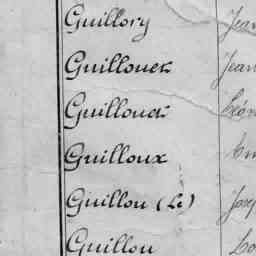 Guillory Jean
Guillouet Jean
Guillouet
Guilloux
Guillou (Le) Josep
Guillou